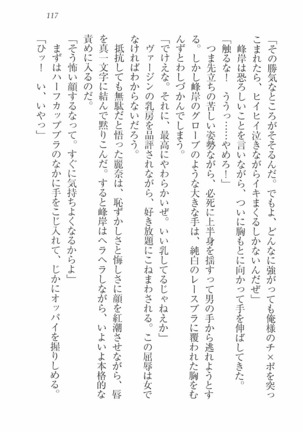 117
「その勝気なところがそそるんだ。でもよ、どんなに強がっても俺様のチ×ポを突っ
こまれたら、ヒイヒイ泣きながらイキまくるしかないんだぜ」
峰岸は恐ろしいことを言いながら、ついに胸もとに向かって手を伸ばしてきた。
「触るな！　ううっ……やめろ！」
つま先立ちの苦しい姿勢ながら、必死に上半身を揺すって男の手から逃れようとす
る。しかし峰岸のグローブのような大きな手は、純白のレースブラに覆われた胸をむ
んずとわしづかんでしまう。
「でけえな。それに、最高にやわらかいぜ。いい乳してるじゃねえか」
ヴァージンの乳房を品評されながら、好き放題にこねまわされる。この屈辱は女で
なければわからないだろう。
抵抗しても無駄だと悟った麗奈は、恥ずかしさと悔しさに顔を紅潮させながら、唇
を真一文字に結んで黙りこんだ。すると峰岸はヘラヘラしながら、いよいよ本格的な
責めに入るのだ。
「そう怖い顔するなって。すぐに気持ちよくなるからよ」
まずはハーフカップブラのなかに手をこじ入れて、じかにオッパイを握りしめる。
「ひっ！　い、いやっ」